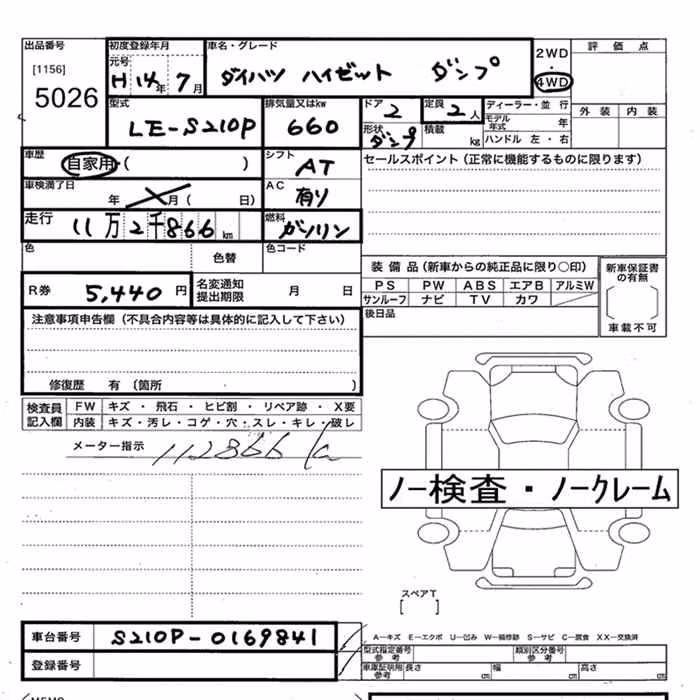 出品番号 初度登録年月 車名・グレード 2WD 評価点
[1156] 元号 ・
5026 H14年7月 ダイハツ ハイゼット ダンプ 4WD
型式 排気量又はkw ドア 定員 ディーラー・並行 外装 内装
LE-S210P 660 2 2人 モデル年式 年
形状 ダンプ 積載 kg ハンドル 左・右
車歴 自家用( ) シフト AT セールスポイント(正常に機能するものに限ります)
車検満了日 年 月( 日) AC 有り
走行 11万2千866km 燃料 ガソリン
色 色替 色コード
装備品(新車からの純正品に限り○印) 新車保証書の有無
R券 5,440円 名変通知提出期限 月 日 PS PW ABS エアB アルミW
サンルーフ ナビ TV カワ [ ]
注意事項申告欄(不具合内容等は具体的に記入して下さい) 後日品 車載不可
修復歴 有 (箇所 )
検査員記入欄 FW キズ・飛石・ヒビ割・リペア跡・X要
内装 キズ・汚レ・コゲ・穴・スレ・キレ・破レ
メーター指示 112866
ノー検査・ノークレーム
スペアT
[ ]
車台番号 S210P-0169841 A―キズ E―エクボ U―凹み W―補修跡 S―サビ C―腐食 XX―交換済
型式指定番号 参考 類別区分番号 参考
登録番号 車庫証明用 参考 長さ cm 幅 cm 高さ cm